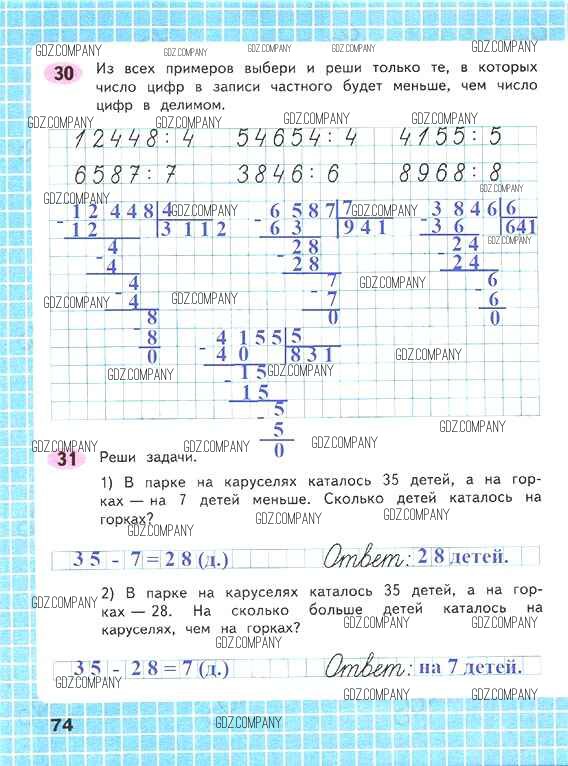 GDZ.COMPANY GDZ.COMPANY GDZ.COMPANY GDZ.COMPANY
30 Из всех примеров выбери и реши только те, в которых
число цифр в записи частного будет меньше, чем число
цифр в делимом.
GDZ.COMPANY GDZ.COMPANY GDZ.COMPANY GDZ.COMPANY
12448:4 54654:4 4155:5
6587:7 3846:6 8968:8
GDZ.COMPANY GDZ.COMPANY GDZ.COMPANY
GDZ.COMPANY
- 12 448 4 - 6587 7 - 3846 6
GDZ.COMPANY GDZ.COMPANY
12 3112 63 941 36 641
GDZ.COMPANY
- 4 - 28 - 24
4 28 24
- 4 - 7 - 6
GDZ.COMPANY
4 7 6
GDZ.COMPANY GDZ.COMPANY
- 8 0 0
8 - 4155 5
0 40 831
GDZ.COMPANY
- 15
GDZ.COMPANY GDZ.COMPANY
15
- 5
5
0
GDZ.COMPANY GDZ.COMPANY GDZ.COMPANY GDZ.COMPANY
31 Реши задачи.
1) В парке на каруселях каталось 35 детей, а на гор-
ках — на 7 детей меньше. Сколько детей каталось на
горках?
GDZ.COMPANY GDZ.COMPANY
35 - 7 = 28 (д.) Ответ: 28 детей.
GDZ.COMPANY GDZ.COMPANY
2) В парке на каруселях каталось 35 детей, а на гор-
ках — 28. На сколько больше детей каталось на
GDZ.COMPANY
каруселях, чем на горках?
GDZ.COMPANY GDZ.COMPANY
GDZ.COMPANY
35 - 28 = 7 (д.) Ответ: на 7 детей.
GDZ.COMPANY
GDZ.COMPANY GDZ.COMPANY
74 GDZ.COMPANY